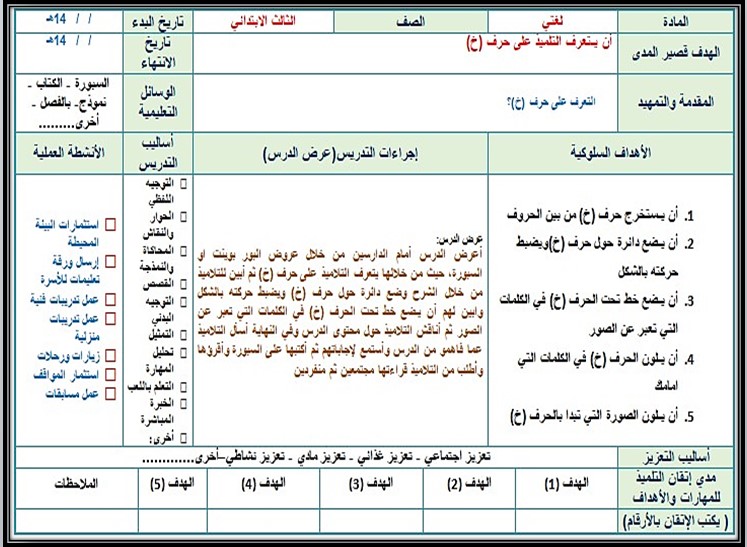 المادة لغتي الصف الثالث الابتدائي تاريخ البدء / / 14هـ
الهدف قصير المدى أن يستعرف التلميذ على حرف (خ) تاريخ الانتهاء / / 14هـ
المقدمة والتمهيد التعرف على حرف (خ)؟ الوسائل التعليمية السبورة ـ الكتاب ـ نموذج- بالفصل ـ أخرى.........
الأهداف السلوكية إجراءات التدريس(عرض الدرس) أساليب التدريس الأنشطة العملية
1. أن يستخرج حرف (خ) من بين الحروف
2. أن يضع دائرة حول حرف (خ)ويضبط
حركته بالشكل
3. أن يضع خط تحت الحرف (خ) في الكلمات
التي تعبر عن الصور
4. أن يلون الحرف (خ) في الكلمات التي
امامك
5. أن يلون الصورة التي تبدا بالحرف (خ)
عرض الدرس:
أعرض الدرس أمام الدارسين من خلال عروض البور بوينت او
السبورة، حيث من خلالها يتعرف التلاميذ على حرف (خ) ثم أبين للتلاميذ
من خلال الشرح وضع دائرة حول حرف (خ) ويضبط حركته بالشكل
وابين لهم أن يضع خط تحت الحرف (خ) في الكلمات التي تعبر عن
الصور ثم أناقش التلاميذ حول محتوى الدرس وفي النهاية أسأل التلاميذ
عما فاهمو من الدرس وأستمع لإجاباتهم ثم أكتبها على السبورة وأقرؤها
وأطلب من التلاميذ قراءتها مجتمعين ثم منفردين
□ التوجيه
اللفظي
□ الحوار
والنقاش
□ المحاكاة
والنمذجة
□ القصص
□ التوجيه
البدني
□ التمثيل
□ تحليل
المهارة
□ التعلم باللعب
□ الخبرة
المباشرة
□ أخرى:
□ استثمارات البيئة
المحيطة
□ إرسال ورقة
تعليمات للأسرة
□ عمل تدريبات فنية
□ عمل تدريبات
منزلية
□ زيارات ورحلات
□ استثمار المواقف
□ عمل مسابقات
أساليب التعزيز تعزيز اجتماعي ـ تعزيز غذائي ـ تعزيز مادي ـ تعزيز نشاطي–أخرى.............
مدي إتقان التلميذ للمهارات والأهداف الهدف (1) الهدف (2) الهدف (3) الهدف (4) الهدف (5) الملاحظات
( يكتب الإتقان بالأرقام)